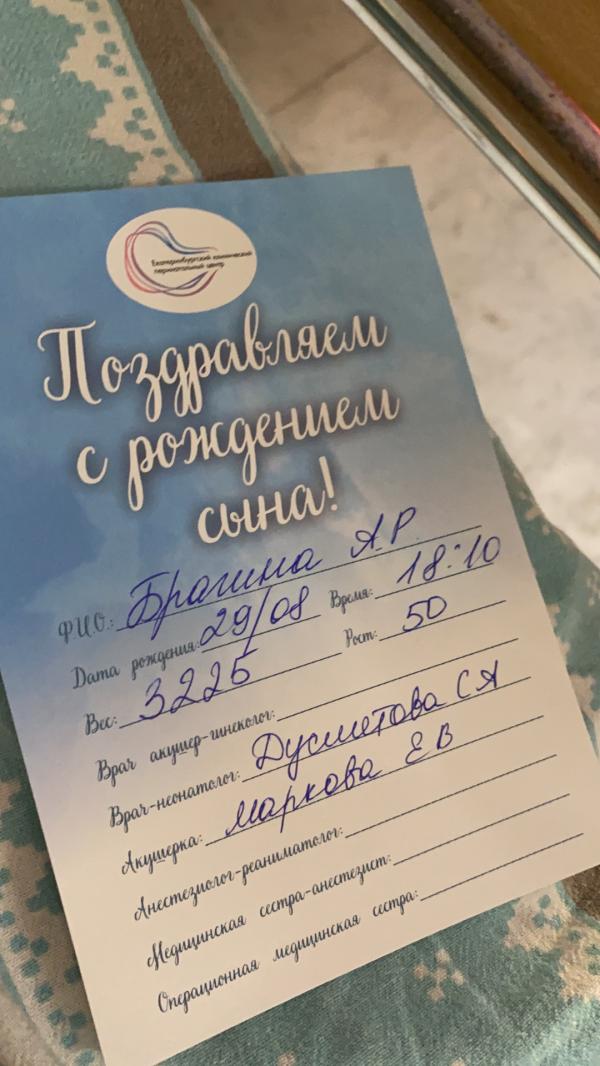 Екатеринбургский клинический
перинатальный центр
Поздравляем
с рождением
сына!
Ф.И.О.: Брагина А.Р.
Дата рождения: 29/08 Время: 18:10
Вес: 3225 Рост: 50
Врач акушер-гинеколог:
Врач-неонатолог: Дусметова С А
Акушерка: Маркова Е В
Анестезиолог-реаниматолог:
Медицинская сестра-анестезист:
Операционная медицинская сестра: